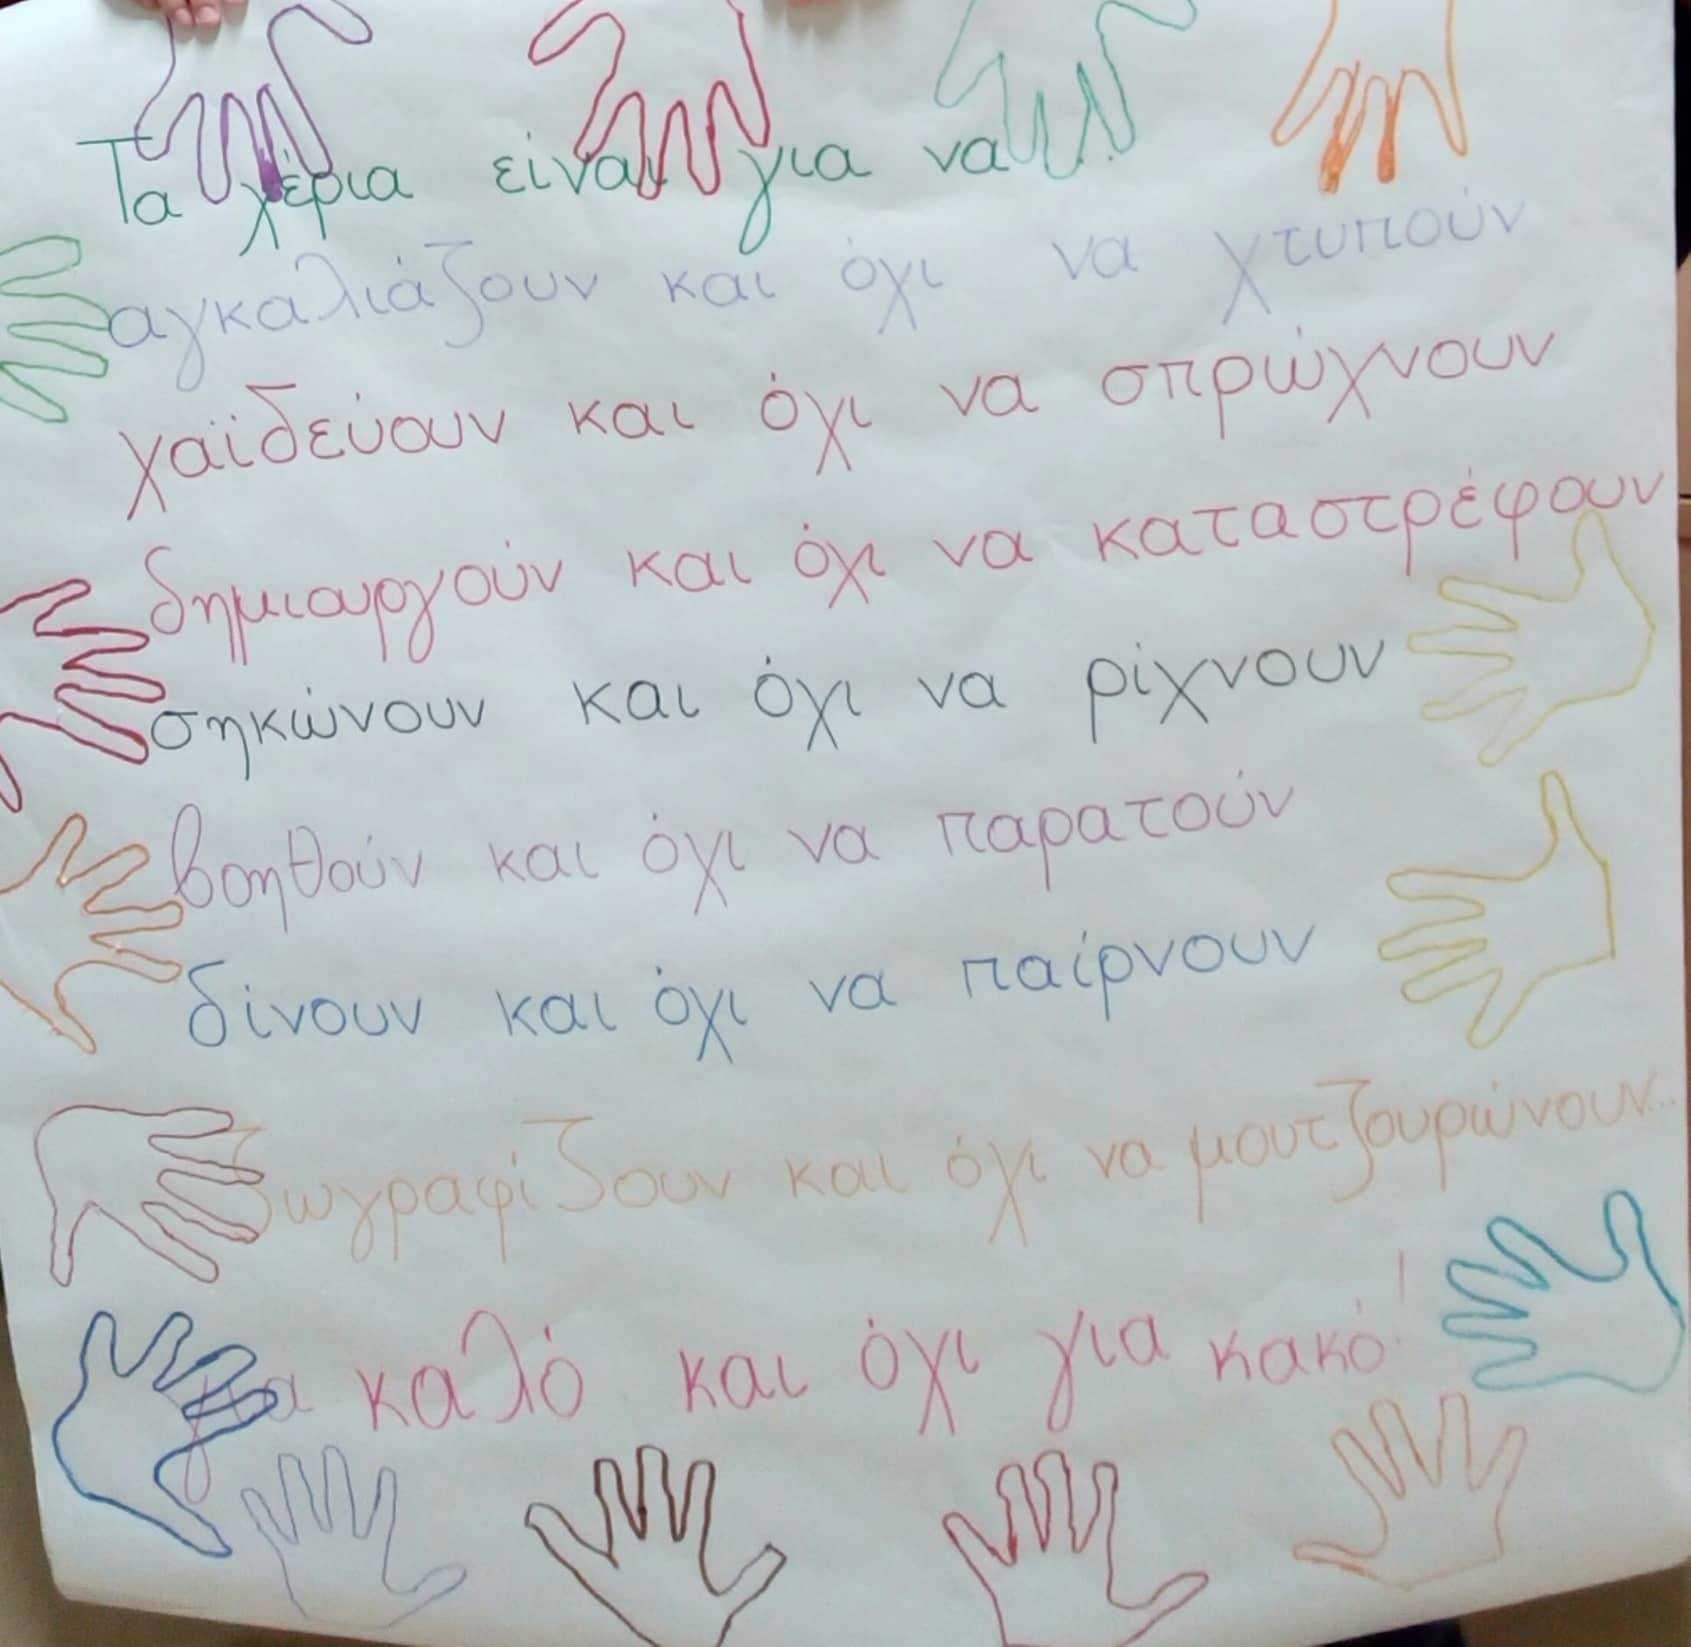 Τα χέρια είναι για να
αγκαλιάζουν και όχι να χτυπούν
χαϊδεύουν και όχι να σπρώχνουν
δημιουργούν και όχι να καταστρέφουν
σηκώνουν και όχι να ρίχνουν
βοηθούν και όχι να παρατούν
δίνουν και όχι να παίρνουν
ζωγραφίζουν και όχι να μουτζουρώνουν...
για καλό και όχι για κακό!